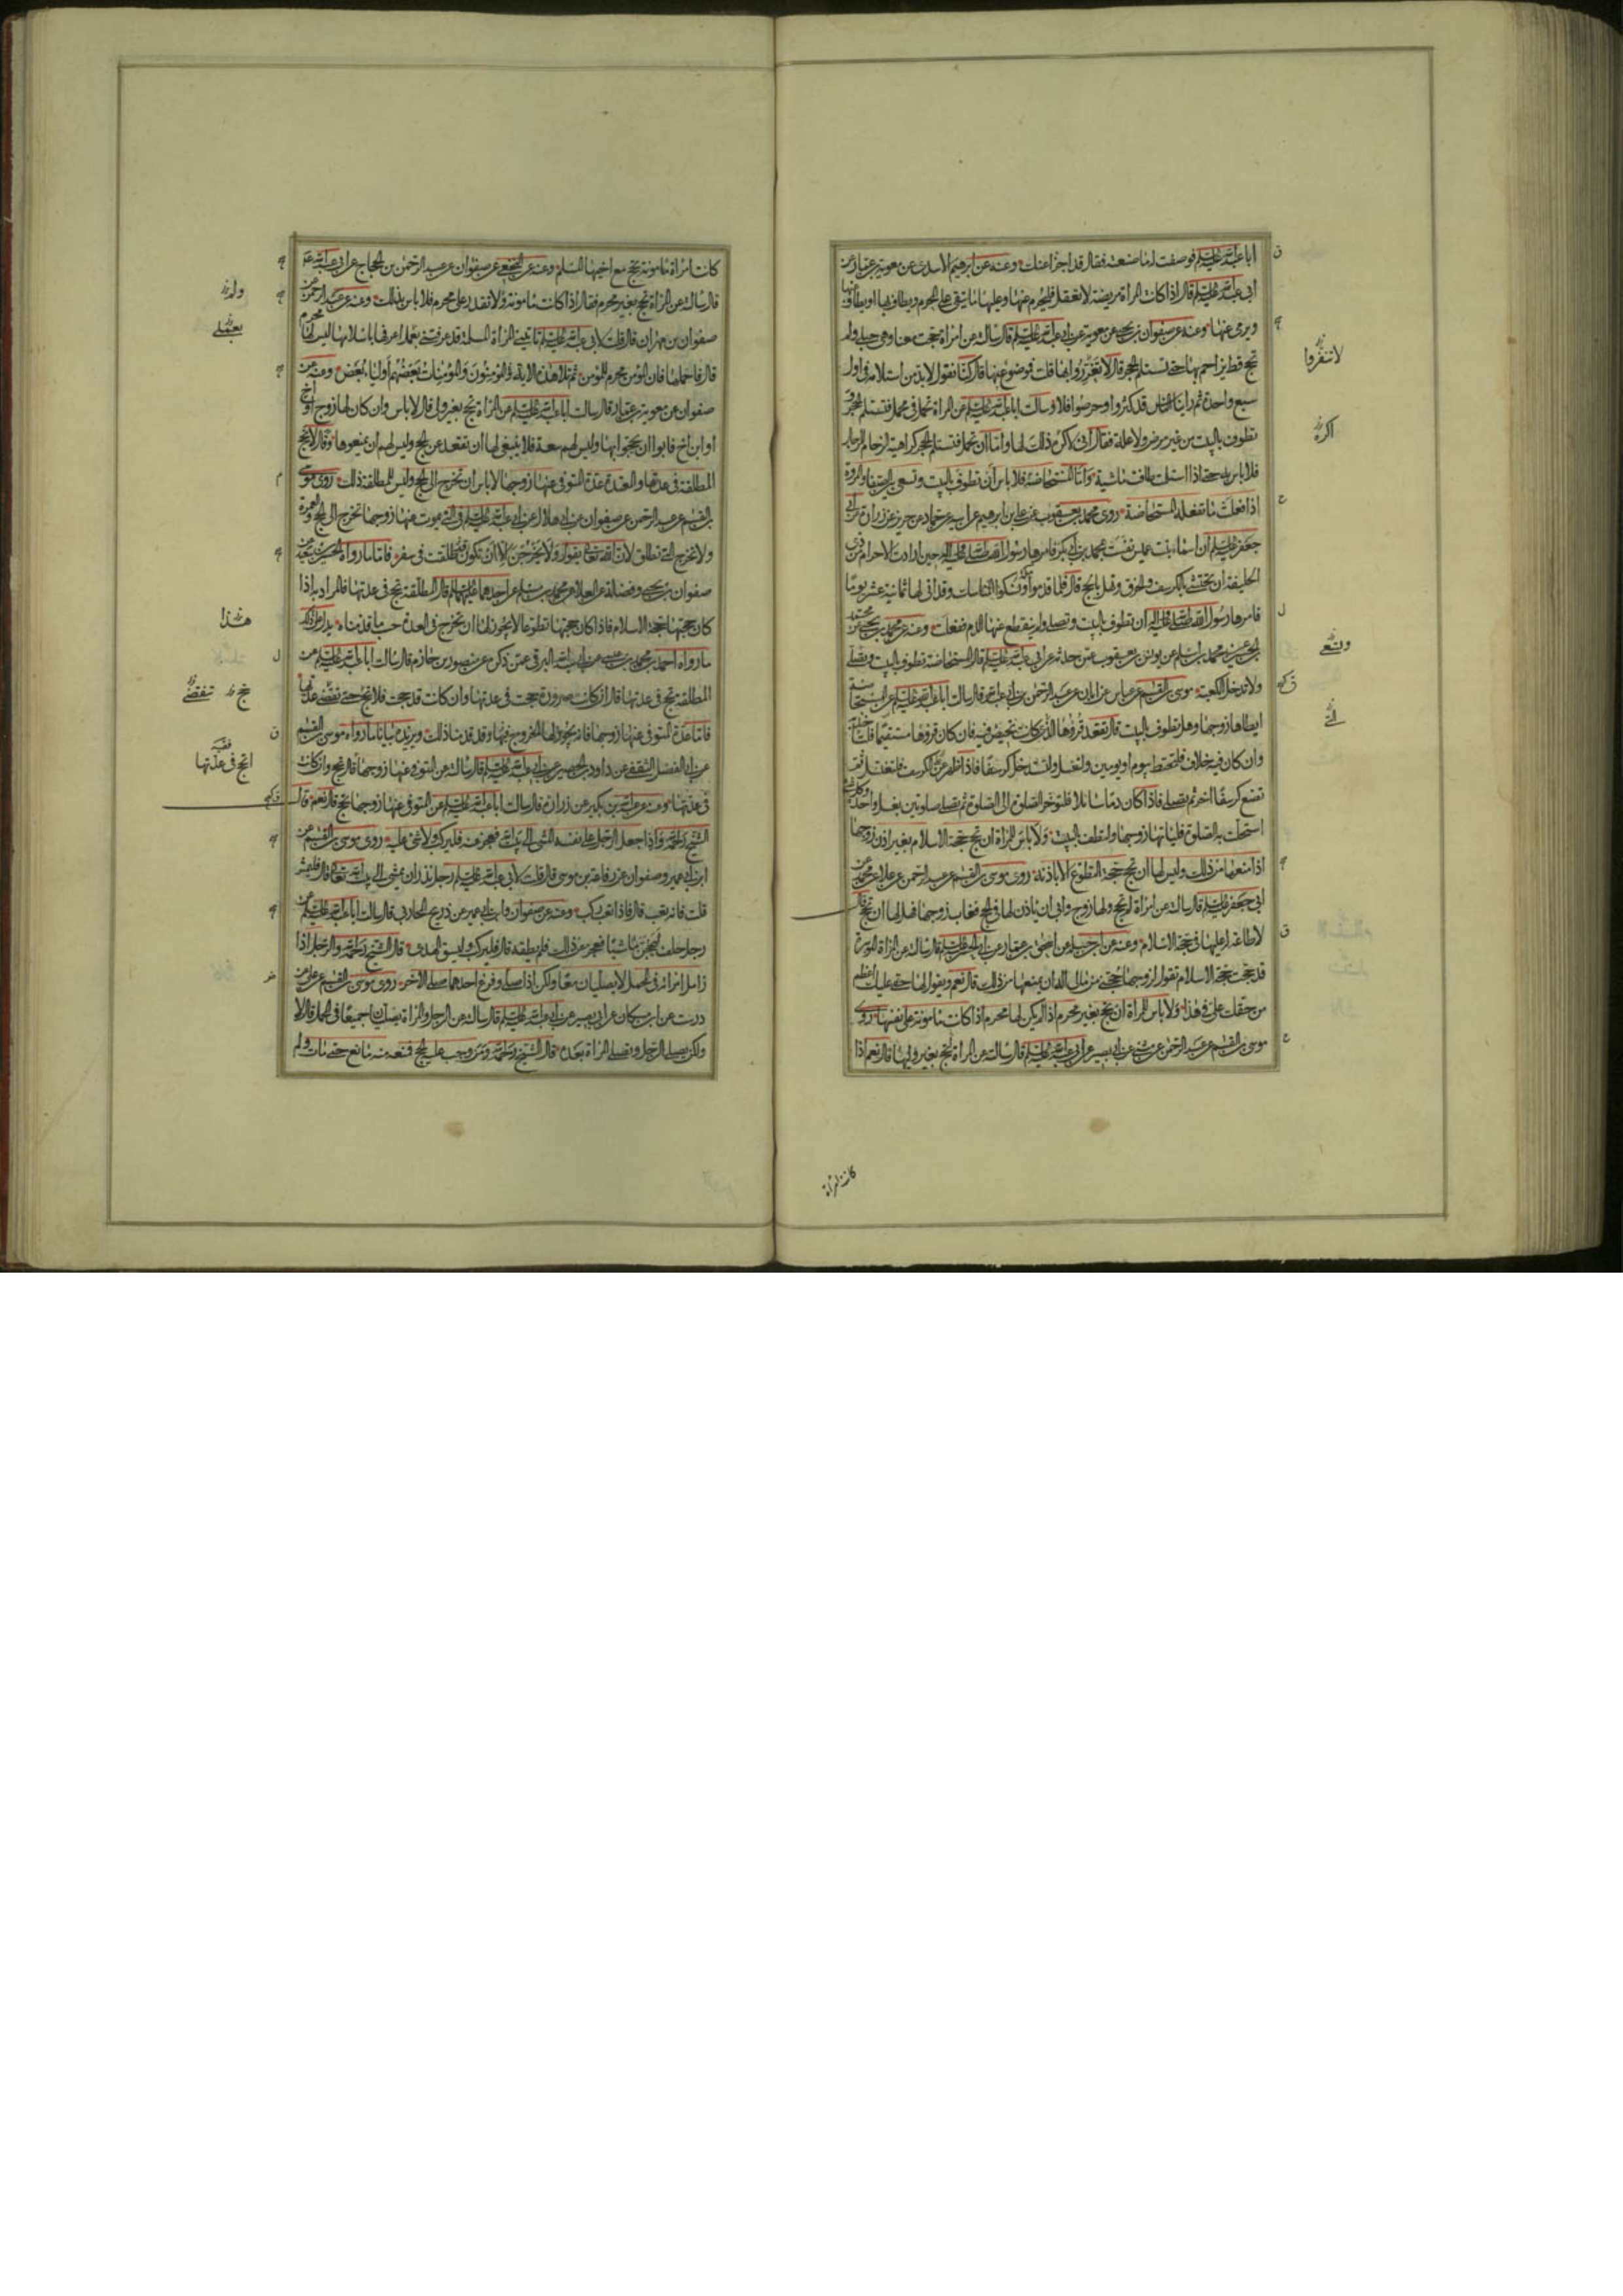 ابا عبد الله عليه السلم فوصفت له ما صنعت فقال قد اجزأ عنك وعنه عن ابرهيم الاسدي عن معوية بن عمار عن
ابي عبد الله عليه السلم قال اذا كانت المرأة مريضة لا تعقل فليحرم عنها وعليها ما يتقى على المحرم ويطاف بها او يطاف عنها
ويرمى عنها وعنه عن صفوان بن يحيى عن معوية عن ابي عبد الله عليه السلم قال سألته عن امرأة حجت معنا وهي حبلى ولم
تحج قط يزاحم بها حتى تستلم الحجر قال لا تغرروا بها قلت فموضوع عنها قال كنا نقول لابد من استلامه في اول
سبع واحدة ثم راينا الناس قد كثروا وحرصوا فلا وسالت ابا عبد الله عليه السلم عن المرأة تحمل في محمل فتستلم الحجر و
تطوف بالبيت من غير مرض ولا علة فقال اني لاكره ذلك لها واما ان تحمل فتستلم الحجر كراهية الزحام للرجال
فلا باس به حتى اذا استلمت طافت ماشية واما المستحاضة فلا باس ان تطوف بالبيت وتسعى بين الصفا والمروة
اذا فعلت ما تفعله المستحاضة روى محمد بن يعقوب عن علي بن ابرهيم عن ابيه عن حماد عن حريز عن زرارة عن ابي
جعفر عليه السلم ان اسماء بنت عميس نفست بمحمد بن ابي بكر فامرها رسول الله صلى الله عليه واله حين ارادت الاحرام من ذي
الحليفة ان تحتشي بالكرسف والخرق وتهل بالحج قال فلما قدموا ونسكوا المناسك وقد اتى لها ثمانية عشر يوما
فامرها رسول الله صلى الله عليه واله ان تطوف بالبيت وتصلي ولم ينقطع عنها الدم ففعلت وعنه عن محمد بن يحيى عن محمد بن
احمد عن محمد بن اسلم عن يونس بن يعقوب عمن حدثه عن ابي عبد الله عليه السلم قال المستحاضة تطوف بالبيت وتصلي
ولا تدخل الكعبة موسى بن القسم عن عباس عن ابان عن عبد الرحمن بن ابي عبد الله قال سالت ابا عبد الله عليه السلم عن المستحاضة
ايطاها زوجها وهل تطوف بالبيت قال تقعد قروها الذي كانت تحيض فيه فان كان قروها مستقيما فلتاخذ به
وان كان فيه خلاف فلتحتط بيوم او يومين ولتغتسل ولتستدخل كرسفا فاذا ظهر عن الكرسف فلتغتسل ثم
تضع كرسفا اخر ثم تصلي فاذا كان دما سائلا فلتؤخر الصلوة الى الصلوة ثم تصلي صلوتين بغسل واحد وكل شيء
استحلت به الصلوة فلياتها زوجها ولتطف بالبيت ولا باس للمرأة ان تحج حجة الاسلام بغير اذن زوجها
اذا منعها من ذلك وليس لها ان تحج حجة التطوع الا باذنه روى موسى بن القسم عن عبد الرحمن عن علاء عن محمد عن
ابي جعفر عليه السلم قال سالته عن امرأة لم تحج ولها زوج وابى ان ياذن لها في الحج فغاب زوجها فهل لها ان تحج قال
لا طاعة له عليها في حجة الاسلام وعنه عن ابن جبلة عن اسحق بن عمار عن ابي الحسن عليه السلم قال سالته عن المرأة الموسرة
قد حجت حجة الاسلام تقول لزوجها احجني من مالي اله ان يمنعها من ذلك قال نعم ويقول لها حقي عليك اعظم
من حقك علي في هذا ولا باس للمرأة ان تحج بغير محرم اذا لم يكن لها محرم اذا كانت مامونة على نفسها روى
موسى بن القسم عن عبد الرحمن عن مثنى عن ابي بصير عن ابي عبد الله عليه السلم قال سالته عن المرأة تحج بغير وليها قال نعم اذا
لا تنفروا
اكره
وتسعى
التي
كانت امرأة
كانت امرأة مامونة تحج مع اخيها المسلم وعنه عن النخعي عن صفوان عن عبد الرحمن بن الحجاج عن ابي عبد الله ع
قال سالته عن المرأة تحج بغير محرم فقال اذا كانت مامونة ولا تقدر على محرم فلا باس بذلك وعنه عن عبد الرحمن عن
صفوان بن مهران قال قلت لابي عبد الله عليه السلم تاتيني المرأة المسلمة قد عرفتني بعمل اعرفها باسلامها ليس لها محرم
قال فاحملها فان المؤمن محرم للمؤمن ثم تلا هذه الاية والمؤمنون والمؤمنات بعضهم اولياء بعض وعنه عن
صفوان عن معوية بن عمار قال سالت ابا عبد الله عليه السلم عن المرأة تحج بغير ولي قال لا باس وان كان لها زوج او اخ
او ابن اخ فابوا ان يحجوا بها وليس لهم سعة فلا ينبغي لها ان تقعد عن الحج وليس لهم ان يمنعوها وقال لا تحج
المطلقة في عدتها والعدة عدة المتوفى عنها زوجها لا باس ان تخرج الى الحج وليس للمطلقة ذلك روى موسى
بن القسم عن عبد الرحمن عن صفوان عن ابي هلال عن ابي عبد الله عليه السلم في التي يموت عنها زوجها تخرج الى الحج والعمرة
ولا تخرج التي تطلق لان الله تعالى يقول ولا يخرجن الا ان تكون طلقت في سفر فاما ما رواه الحسين بن سعيد عن
صفوان بن يحيى وفضالة عن العلاء عن محمد بن مسلم عن احدهما عليهما السلم قال المطلقة تحج في عدتها فالمراد به اذا
كان حجتها حجة الاسلام فاذا كان حجتها تطوعا لا يجوز لها ان تخرج في العدة حسب ما قدمناه يدل على ذلك
ما رواه احمد بن محمد بن عيسى عن ابي عبد الله البرقي عمن ذكره عن منصور بن حازم قال سالت ابا عبد الله عليه السلم عن
المطلقة تحج في عدتها قال ان كانت صرورة حجت في عدتها وان كانت قد حجت فلا تحج حتى تقضي عدتها
فاما عدة المتوفى عنها زوجها فانه يجوز لها الخروج فيها وقد قدمنا ذلك ويزيده بيانا ما رواه موسى بن القسم
عن ابي الفضل الثقفي عن داود بن الحصين عن ابي عبد الله عليه السلم قال سالته عن المتوفى عنها زوجها قال تحج وان كانت
في عدتها وعنه عن عبد الله بن بكير عن زرارة قال سالت ابا عبد الله عليه السلم عن المتوفى عنها زوجها تحج قال نعم قال
الشيخ رحمه الله واذا جعل الرجل على نفسه المشي الى بيت الله فعجز عنه فليركب ولا شئ عليه روى موسى بن القسم عن
ابن ابي عمير وصفوان عن رفاعة بن موسى قال قلت لابي عبد الله عليه السلم رجل نذر ان يمشي الى بيت الله تعالى قال فليمش
قلت فانه تعب قال فاذا تعب ركب وعنه عن صفوان وابن ابي عمير عن ذريح المحاربي قال سالت ابا عبد الله عليه السلم عن
رجل حلف ليحجن ماشيا فعجز عن ذلك فلم يطقه قال فليركب وليسق الهدى قال الشيخ رحمه الله والرجل اذا
زامل امراته في المحمل لا يصليان معا ولكن اذا صلى وفرغ احدهما صلى الاخر روى موسى بن القسم عن علي عن
درست عن ابن مسكان عن ابي بصير عن ابي عبد الله عليه السلم قال سالته عن الرجل والمرأة يصليان جميعا في المحمل قال لا
ولكن يصلي الرجل وتصلي المرأة بعده قال الشيخ رحمه الله ومن وجب عليه الحج فمنعه منه مانع حتى مات ولم
ولد
بعملي
هذا
تحج تنقضي
اتحج في عدتها